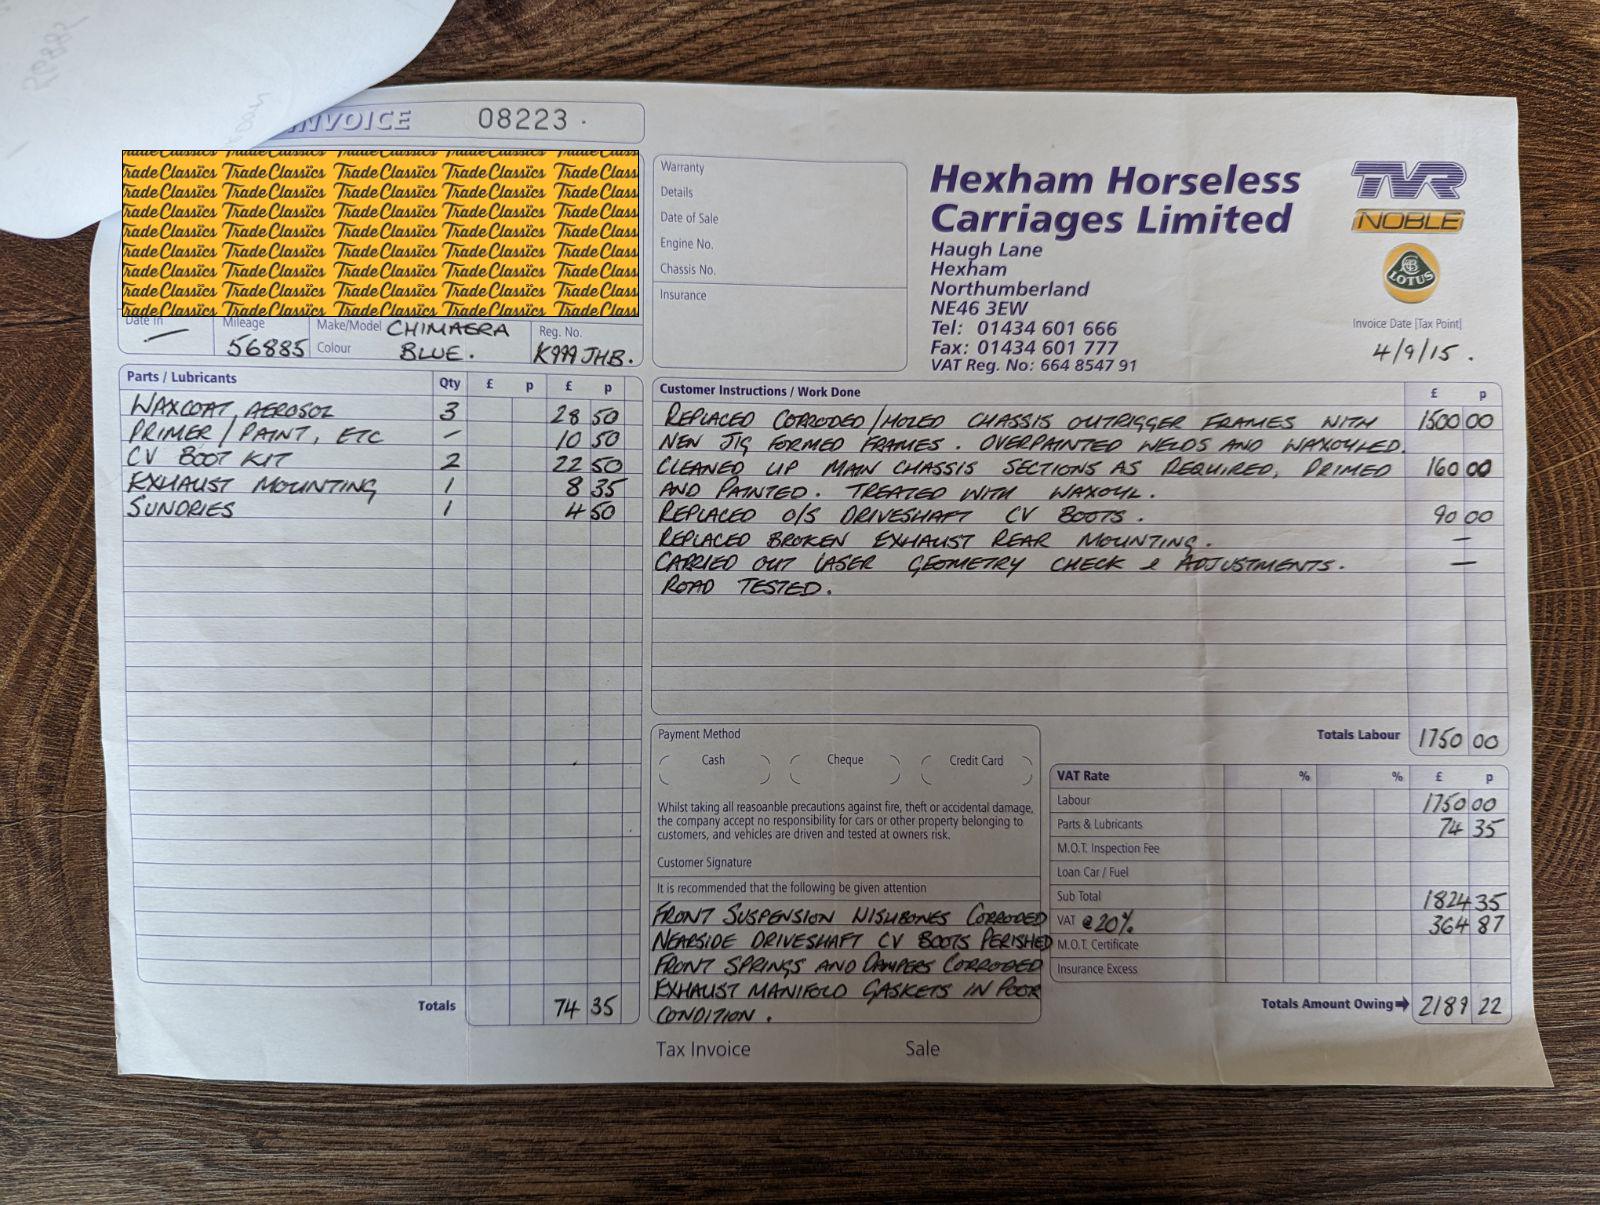 INVOICE 08223 .
Trade Classics
Date In Mileage 56885
Make/Model CHIMAERA
Colour BLUE.
Reg. No. K999 JHB.
Warranty
Details
Date of Sale
Engine No.
Chassis No.
Insurance
Hexham Horseless
Carriages Limited
Haugh Lane
Hexham
Northumberland
NE46 3EW
Tel: 01434 601 666
Fax: 01434 601 777
VAT Reg. No: 664 8547 91
TVR
NOBLE
LOTUS
Invoice Date [Tax Point]
4/9/15 .
Parts / Lubricants Qty £ p £ p
WAXCOAT AEROSOL 3 28 50
PRIMER / PAINT, ETC - 10 50
CV BOOT KIT 2 22 50
EXHAUST MOUNTING 1 8 35
SUNDRIES 1 4 50
Totals 74 35
Customer Instructions / Work Done £ p
REPLACED CORRODED/HOLED CHASSIS OUTRIGGER FRAMES WITH 1500 00
NEW JIG FORMED FRAMES. OVERPAINTED WELDS AND WAXOYLED.
CLEANED UP MAIN CHASSIS SECTIONS AS REQUIRED, PRIMED 160 00
AND PAINTED. TREATED WITH WAXOYL.
REPLACED O/S DRIVESHAFT CV BOOTS. 90 00
REPLACED BROKEN EXHAUST REAR MOUNTING. —
CARRIED OUT LASER GEOMETRY CHECK & ADJUSTMENTS. —
ROAD TESTED.
Totals Labour 1750 00
Payment Method
Cash Cheque Credit Card
Whilst taking all reasoanble precautions against fire, theft or accidental damage,
the company accept no responsibility for cars or other property belonging to
customers, and vehicles are driven and tested at owners risk.
Customer Signature
It is recommended that the following be given attention
FRONT SUSPENSION WISHBONES CORRODED
NEARSIDE DRIVESHAFT CV BOOTS PERISHED
FRONT SPRINGS AND DAMPERS CORRODED
EXHAUST MANIFOLD GASKETS IN POOR
CONDITION.
VAT Rate % % £ p
Labour 1750 00
Parts & Lubricants 74 35
M.O.T. Inspection Fee
Loan Car / Fuel
Sub Total 1824 35
VAT @20% 364 87
M.O.T. Certificate
Insurance Excess
Totals Amount Owing 2189 22
Tax Invoice Sale